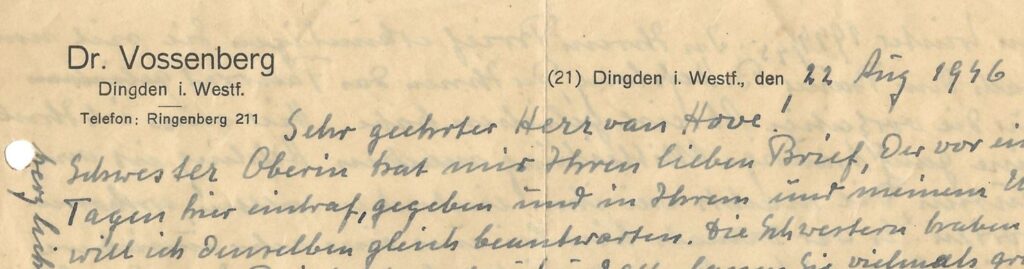 Dr. Vossenberg
Dingden i. Westf.
Telefon: Ringenberg 211
(21) Dingden i. Westf., den 22 Aug 1946
Sehr geehrter Herr van Hove!
Schwester Oberin hat mir Ihren lieben Brief, der vor ein
Tagen hier eintraf, gegeben und in Ihrem und meinem
will ich denselben gleich beantworten. Die Schwestern haben
lassen Sie vielmals
herzlich